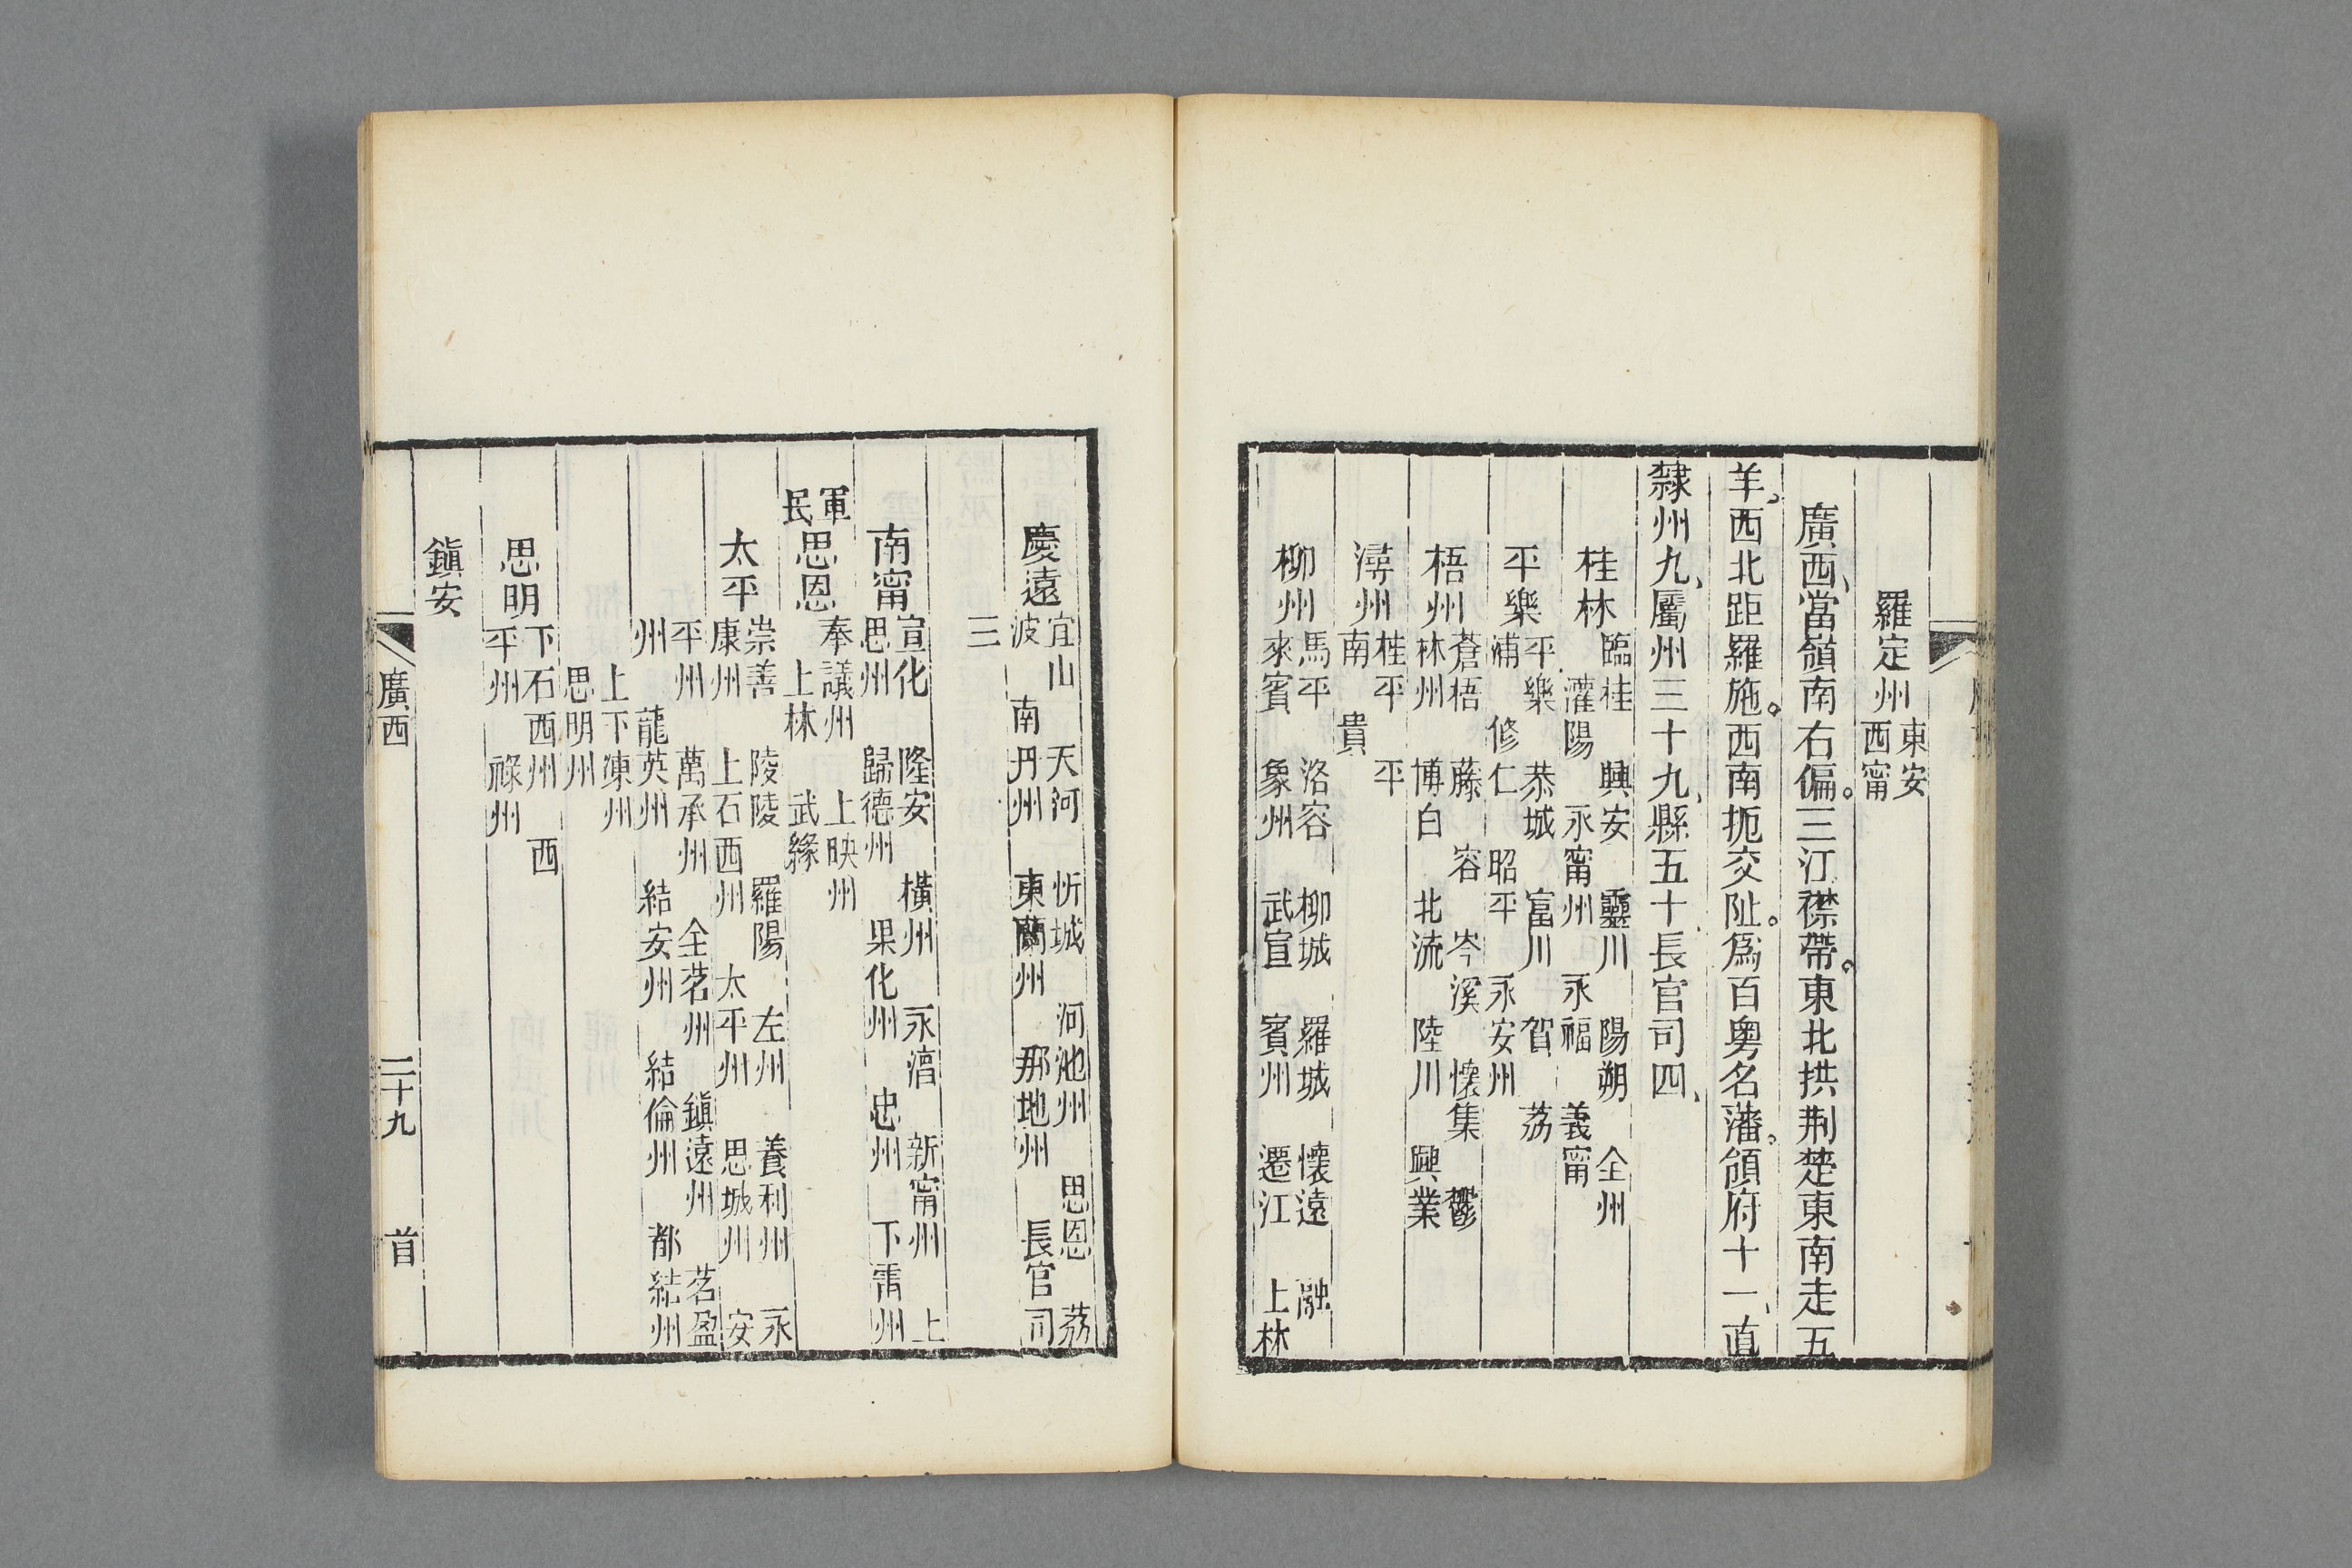 羅定州 東安
西甯
廣西、當嶺南右偏。三江襟帶。東北拱荆楚東南走五
羊。西北距羅施。西南扼交阯。爲百粵名藩。領府十一、直
隸州九、屬州三十九、縣五十、長官司四、
桂林 臨桂 興安 靈川 陽朔 全州
灌陽 永甯州 永福 義甯
平樂 平樂 恭城 富川 賀 荔
浦 修仁 昭平 永安州
梧州 蒼梧 藤 容 岑溪 懷集 鬱
林州 博白 北流 陸川 興業
潯州 桂平 平
南 貴
柳州 馬平 洛容 柳城 羅城 懷遠 融
來賓 象州 武宣 賓州 遷江 上林
慶遠 宜山 天河 忻城 河池州 思恩 荔
波 南丹州 東蘭州 那地州 長官司
三
南甯 宣化 隆安 橫州 永淳 新甯州 上
思州 歸德州 果化州 忠州 下雷州
軍民思恩 奉議州 上映州
上林 武緣
太平 崇善 陵陵 羅陽 左州 養利州 永
康州 上石西州 太平州 思城州 安
平州 萬承州 全茗州 鎮遠州 茗盈
州 龍英州 結安州 結倫州 都結州
上下凍州
思明州
思明 下石西州 西
平州 祿州
鎮安
廣西 二十九 首